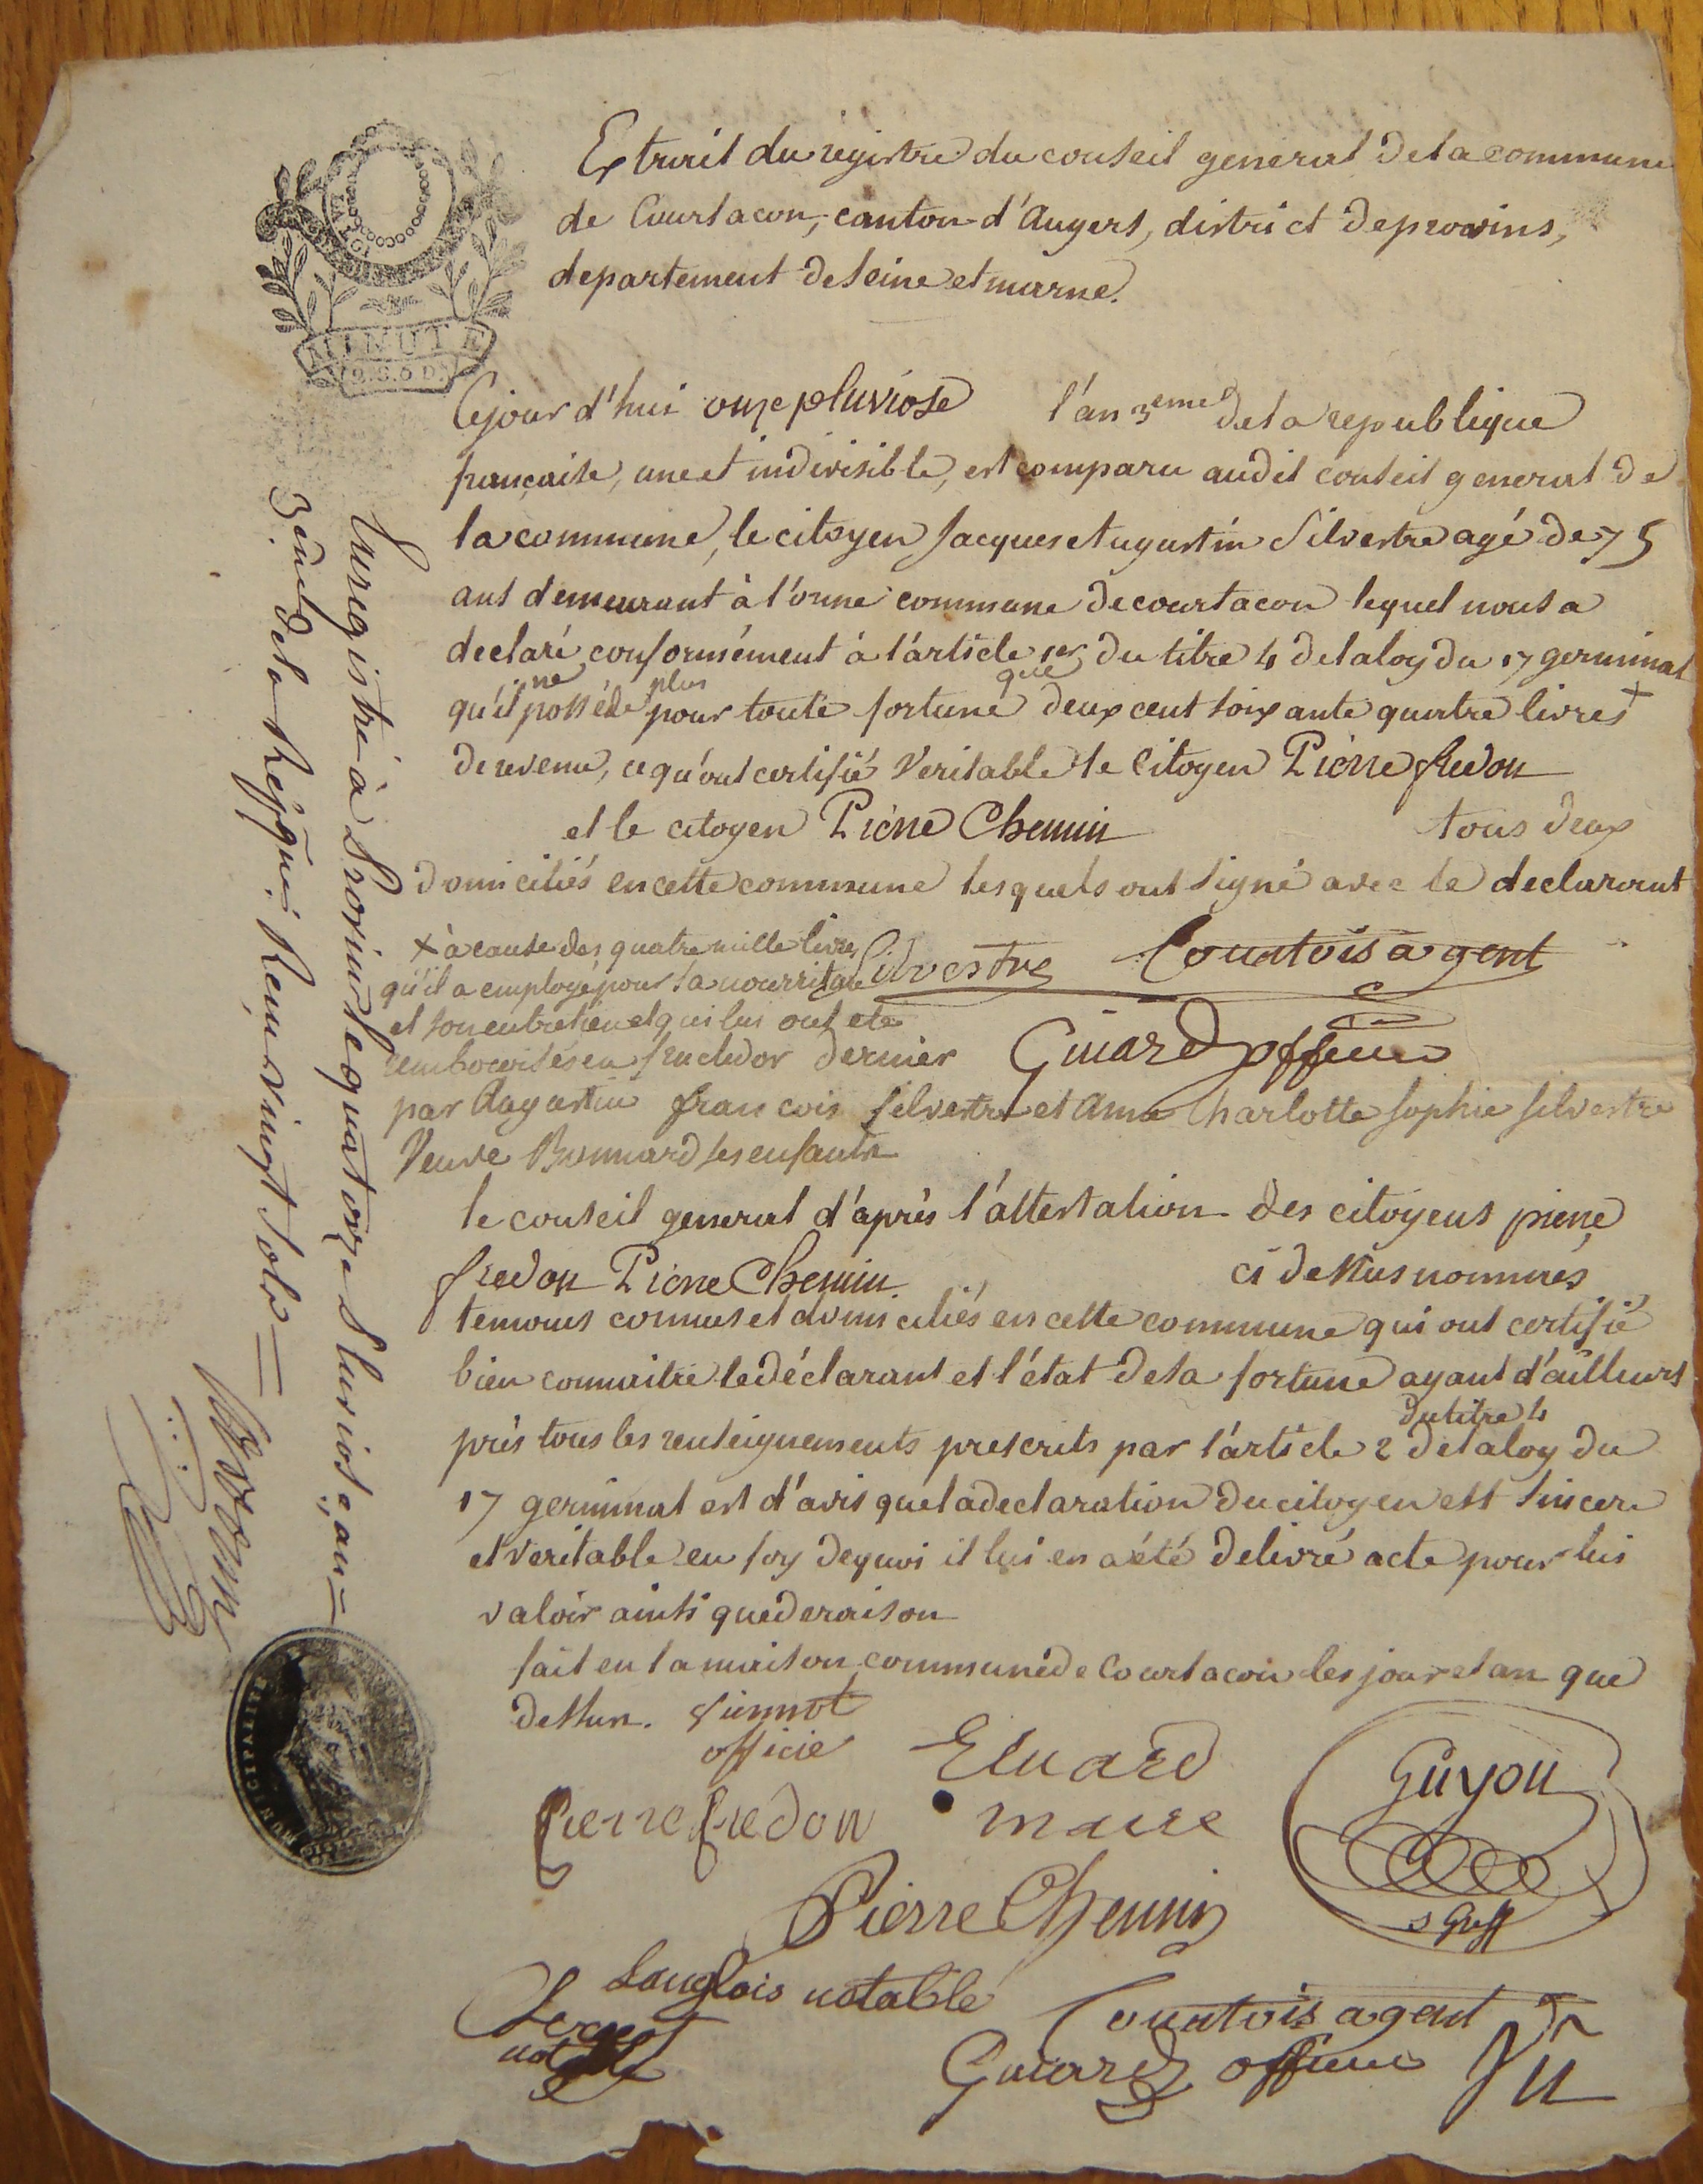 Extrait du registre du conseil general de la commune
de Courtacon, canton d'Augers, district de provins,
departement de seine et marne.
MINUTE
Cejourd'hui onze pluviose l'an 3eme de la republique
française, une et indivisible, est comparu audit conseil general de
la commune, le citoyen Jacques Augustin Silvestre agé de 75
ans demeurant à l'orme commune de courtacon lequel nous a
declaré conformément à l'article 1er du titre 4 de la loy du 17 germinal
qu'il ne posséde plus pour toute fortune que deux cent soixante quatre livres +
de revenu, ce qu'ont certifié veritable le citoyen Pierre fredon
et le citoyen Pierre Chemin tous deux
domiciliés en cette commune lesquels ont signé avec le declarant
+ à cause des quatre mille livres
qu'il a employé pour sa nourriture
et son entretien et qui lui ont eté
remboursés en fructidor dernier
par Augustin françois silvestre et Anne Charlotte sophie silvestre
Veuve Bonnard ses enfants
Silvestre Courtois agent
Guiard officier
le conseil general d'après l'attestation des citoyens pierre
fredon Pierre Chemin ci dessus nommés
temoins connus et domiciliés en cette commune qui ont certifié
bien connaitre le déclarant et l'état de sa fortune ayant d'ailleurs
pris tous les renseignements prescrits par l'article 2 du titre 4 de la loy du
17 germinal est d'avis que la declaration du citoyen est sincere
et veritable en foy de quoi il lui en a été delivré acte pour lui
valoir ainsi que de raison
fait en la maison commune de Courtacon les jour et an que
dessus. Simmot
officie
Eluard
maire
Guyon
s Greff
Pierre fredon
Pierre Chemin
Langlois notable
notable
Courtois agent
Guiard officier
Vu
Enregistré à Provins le quatorze Pluviose, an
3eme de la Repque. Reçu vingt sols
MUNICIPALITE